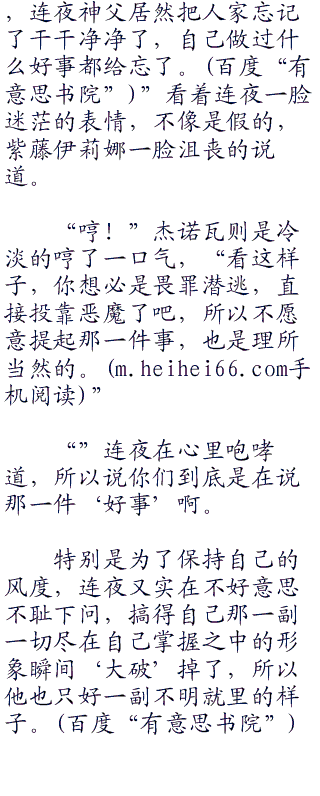 ，连夜神父居然把人家忘记
了干干净净了，自己做过什
么好事都给忘了。(百度“有
意思书院”)”看着连夜一脸
迷茫的表情，不像是假的，
紫藤伊莉娜一脸沮丧的说
道。
“哼！”杰诺瓦则是冷
淡的哼了一口气，“看这样
子，你想必是畏罪潜逃，直
接投靠恶魔了吧，所以不愿
意提起那一件事，也是理所
当然的。(m.heihei66.com手
机阅读)”
“”连夜在心里咆哮
道，所以说你们到底是在说
那一件‘好事’啊。
特别是为了保持自己的
风度，连夜又实在不好意思
不耻下问，搞得自己那一副
一切尽在自己掌握之中的形
象瞬间‘大破’掉了，所以
他也只好一副不明就里的样
子。(百度“有意思书院”)